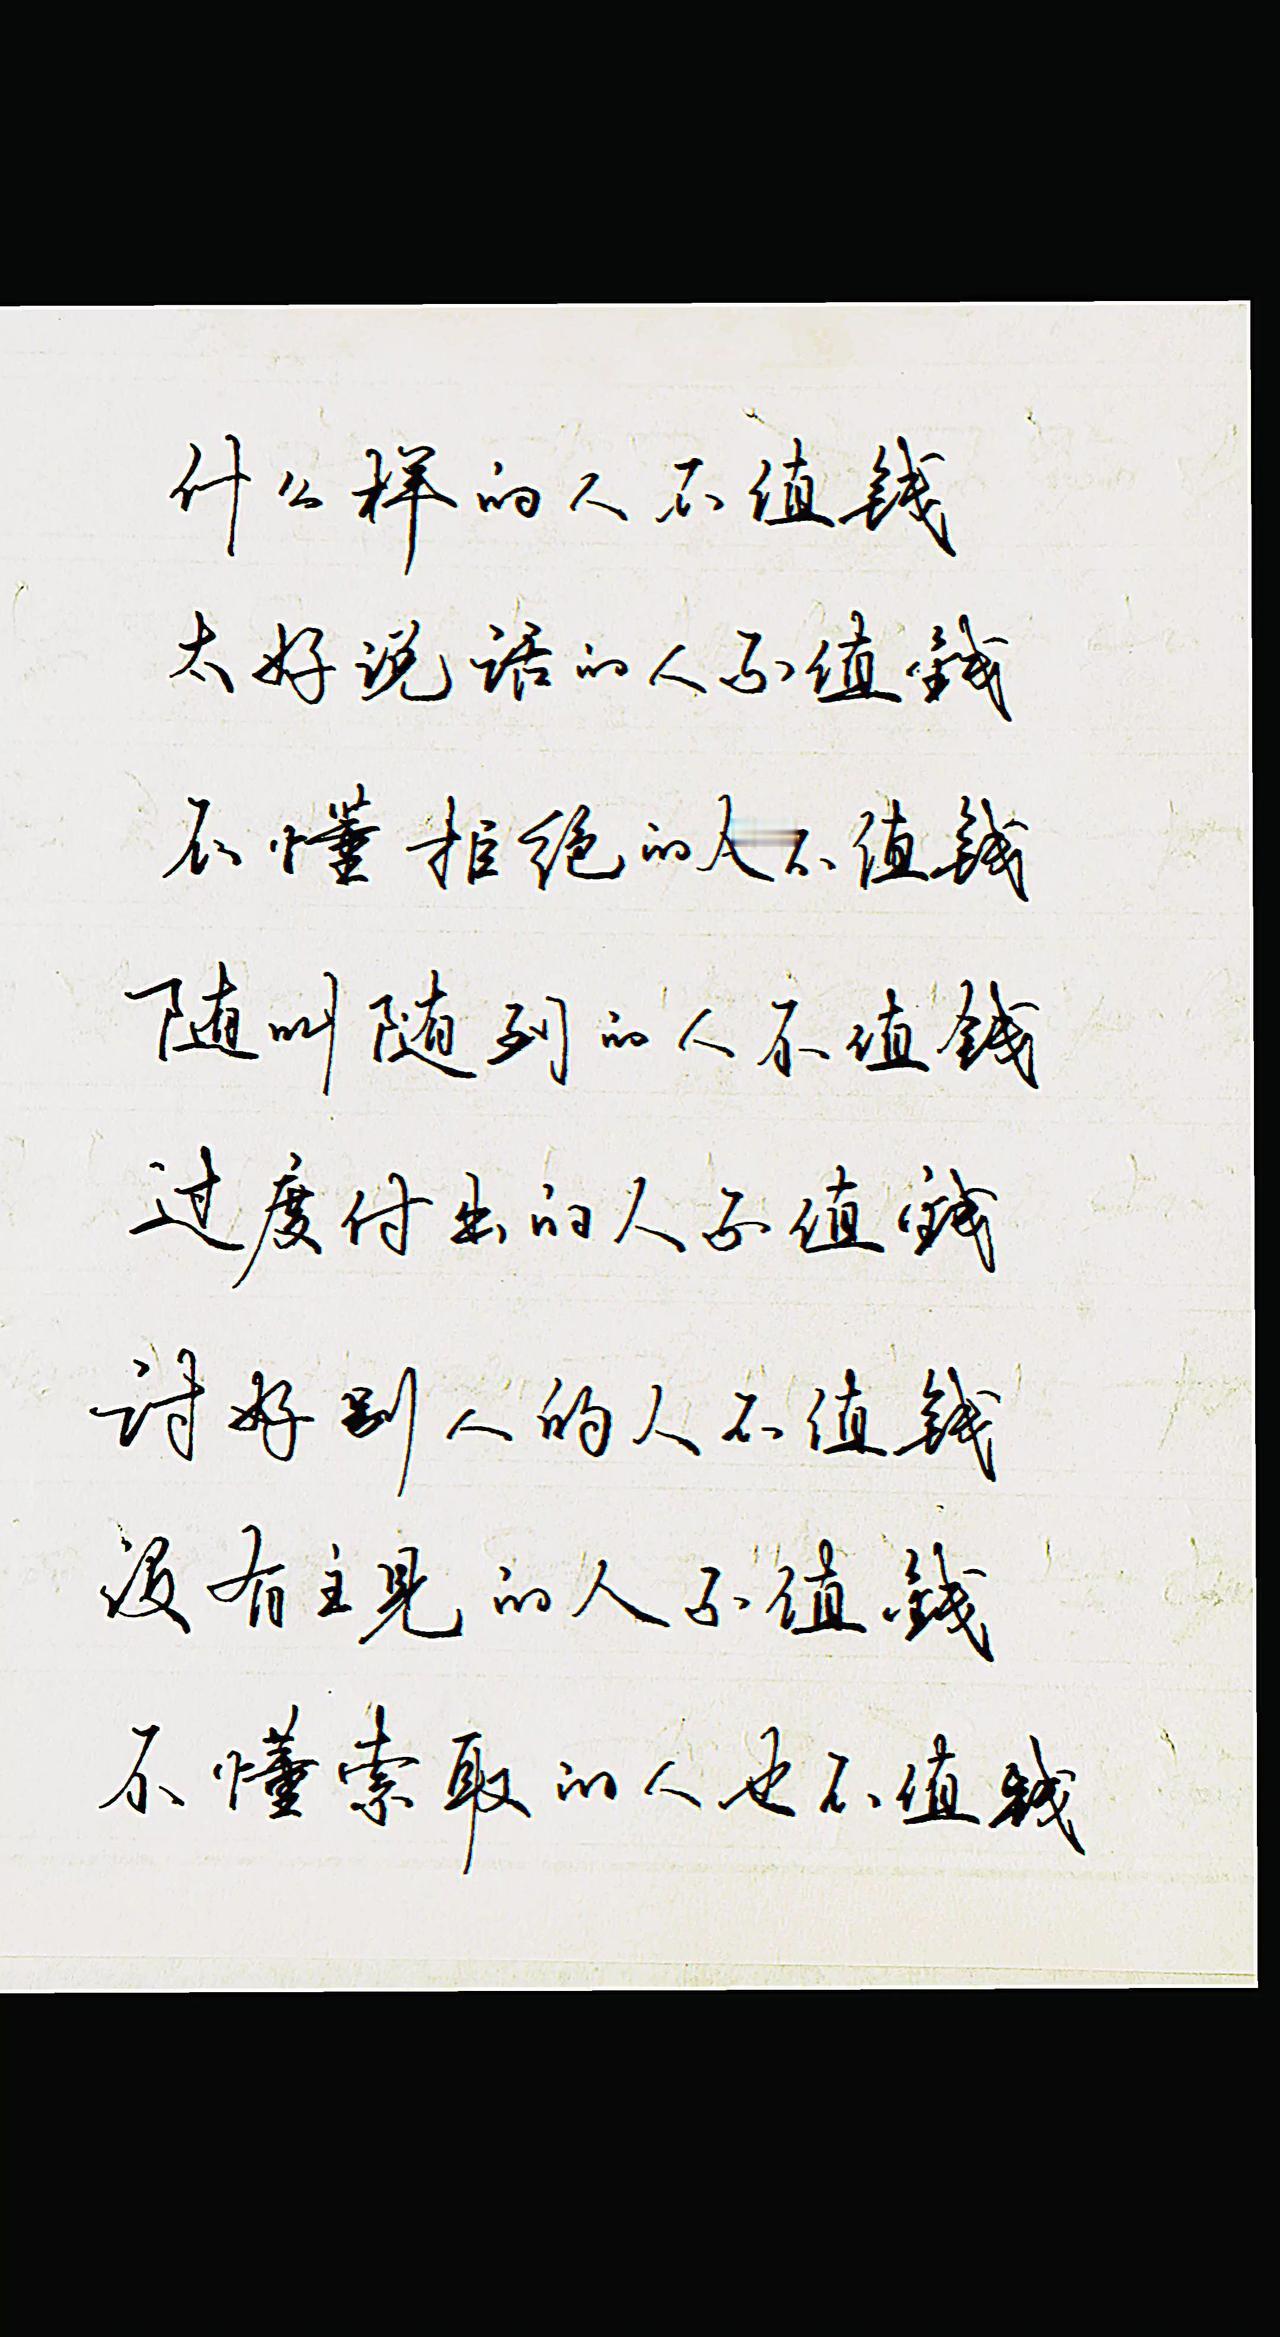 什么样的人不值钱
太好说话的人不值钱
不懂拒绝的人不值钱
随叫随到的人不值钱
过度付出的人不值钱
讨好别人的人不值钱
没有主见的人不值钱
不懂索取的人也不值钱